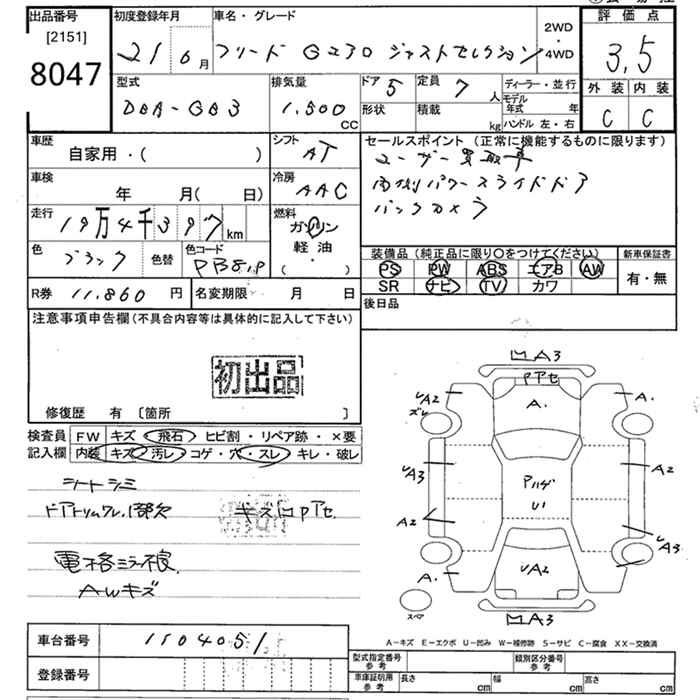 出品番号 初度登録年月 車名・グレード 評価点
[2151] 2WD
8047 21 6月 フリード G エアロ ジャストセレクション ・4WD 3.5
型式 排気量 ドア 5 定員 7人 ディーラー・並行 外装 内装
DBA-GB3 1,500 CC 形状 積載 kg モデル年式 年 C C
ハンドル 左・右
車歴 シフト セールスポイント (正常に機能するものに限ります)
自家用・( ) AT ユーザー買取車
車検 冷房 両側パワースライドドア
年 月( 日) AAC バックカメラ
走行 19万4千397km 燃料
ガソリン
色 ブラック 色替 色コード 軽油 装備品 (純正品に限り○をつけてください) 新車保証書
PB81P ・( ) PS PW ABS エアB AW 有・無
R券 11,860円 名変期限 月 日 SR ナビ TV カワ
注意事項申告欄(不具合内容等は具体的に記入して下さい) 後日品
初出品
修復歴 有 [箇所 ]
検査員 FW キズ 飛石 ヒビ割・リペア跡・×要
記入欄 内装 キズ 汚レ コゲ・穴・スレ キレ・破レ
シートシミ
ドアトリムワレ、1部欠 キズ凹Pアセ
電格ミラー不良
AWキズ
A3
Pアセ
A2 A. A.
ズレ
A3 Pハゲ A2
U1
A2 A3
A. UA2
スペア A3
A-キズ E-エクボ U-凹み W-補修跡 S-サビ C-腐食 XX-交換済
車台番号 1104051
登録番号
型式指定番号 参考 類別区分番号 参考
車庫証明用 参考 長さ cm 幅 cm 高さ cm